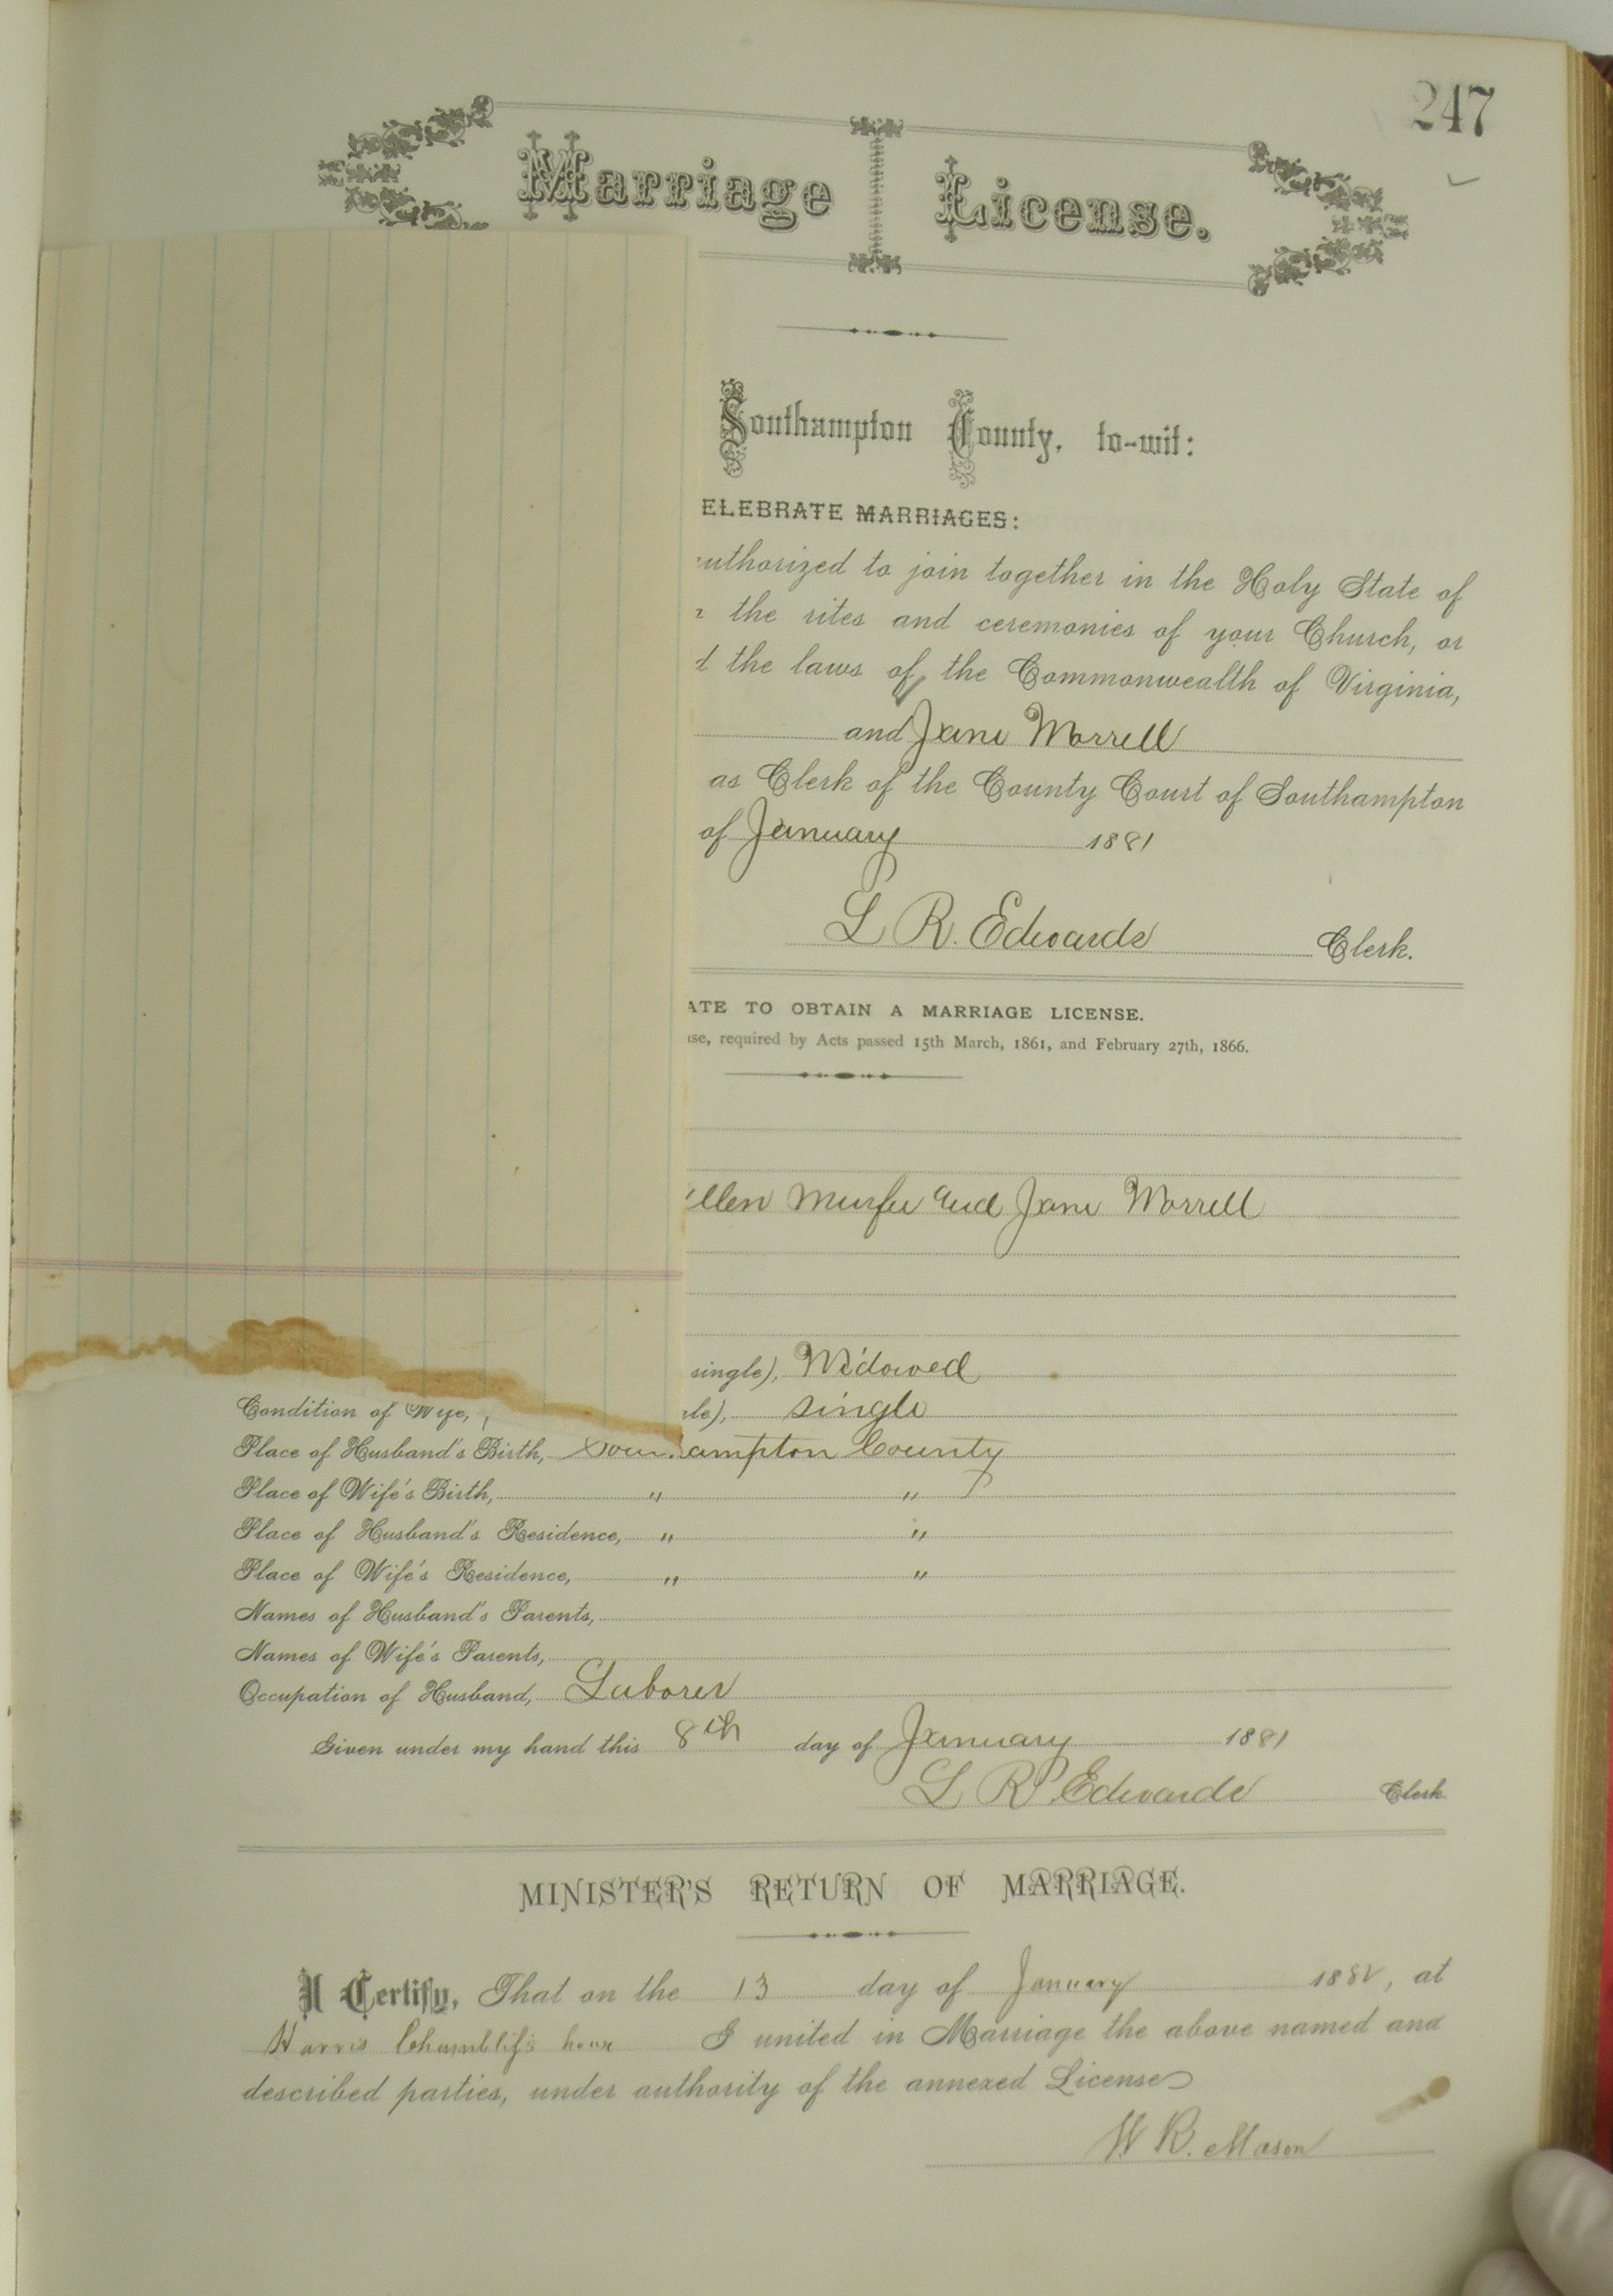 247
Marriage License.
Southampton County, to-wit:
ELEBRATE MARRIAGES:
uthorized to join together in the Holy State of
the rites and ceremonies of your Church, or
the laws of the Commonwealth of Virginia,
and Jane Worrell
as Clerk of the County Court of Southampton
of January 1881
L R. Edwards Clerk.
ATE TO OBTAIN A MARRIAGE LICENSE.
nse, required by Acts passed 15th March, 1861, and February 27th, 1866.
llen Murfee and Jane Worrell
single), Widowed
Condition of Wife, gle), single
Place of Husband's Birth, Southampton County
Place of Wife's Birth, " "
Place of Husband's Residence, " "
Place of Wife's Residence, " "
Names of Husband's Parents,
Names of Wife's Parents,
Occupation of Husband, Laborer
Given under my hand this 8th day of January 1881
L R Edwards Clerk
MINISTER'S RETURN OF MARRIAGE.
I Certify, That on the 13 day of January 188 , at
Harris I united in Marriage the above named and
described parties, under authority of the annexed License
W R. Mason